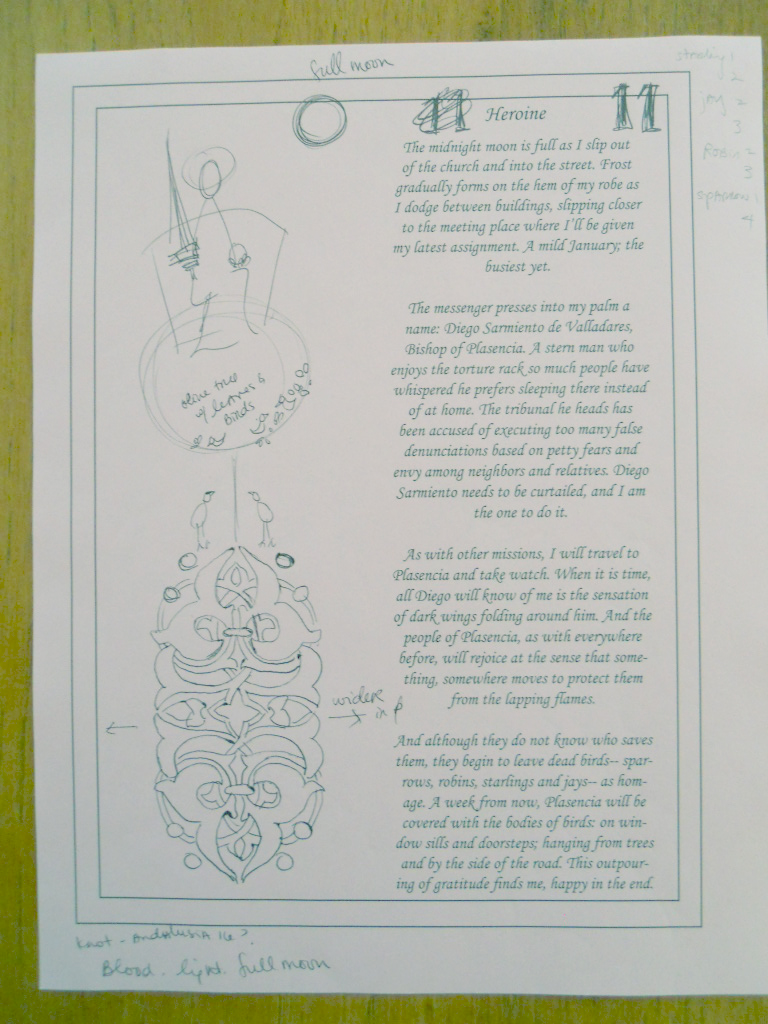 full moon
starling 1
2
jay 2
3
Robin 2
3
sparrow 1
4
11 Heroine 11
The midnight moon is full as I slip out
of the church and into the street. Frost
gradually forms on the hem of my robe as
I dodge between buildings, slipping closer
to the meeting place where I'll be given
my latest assignment. A mild January; the
busiest yet.
The messenger presses into my palm a
name: Diego Sarmiento de Valladares,
Bishop of Plasencia. A stern man who
enjoys the torture rack so much people have
whispered he prefers sleeping there instead
of at home. The tribunal he heads has
been accused of executing too many false
denunciations based on petty fears and
envy among neighbors and relatives. Diego
Sarmiento needs to be curtailed, and I am
the one to do it.
As with other missions, I will travel to
Plasencia and take watch. When it is time,
all Diego will know of me is the sensation
of dark wings folding around him. And the
people of Plasencia, as with everywhere
before, will rejoice at the sense that some-
thing, somewhere moves to protect them
from the lapping flames.
And although they do not know who saves
them, they begin to leave dead birds-- spar-
rows, robins, starlings and jays-- as hom-
age. A week from now, Plasencia will be
covered with the bodies of birds: on win-
dow sills and doorsteps; hanging from trees
and by the side of the road. This outpour-
ing of gratitude finds me, happy in the end.
olive tree
w/ leaves &
Birds
wider
in
Knot - Andalusia 16
Blood. light. full moon